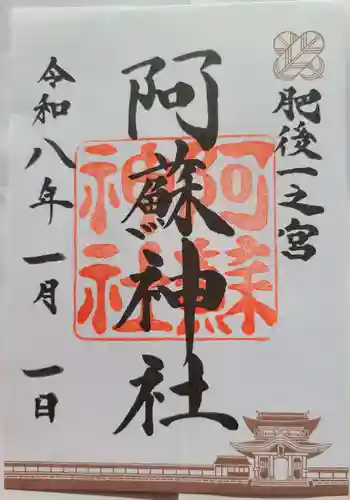 肥後一之宮
阿蘇神社
令和八年一月一日
阿蘇
神社